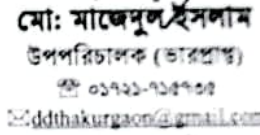 মো: মাজেদুল ইসলাম
উপপরিচালক (ভারপ্রাপ্ত)
☎ ০১৭২১-৭১৫৭৩৫
✉ddthakurgaon@gmail.com